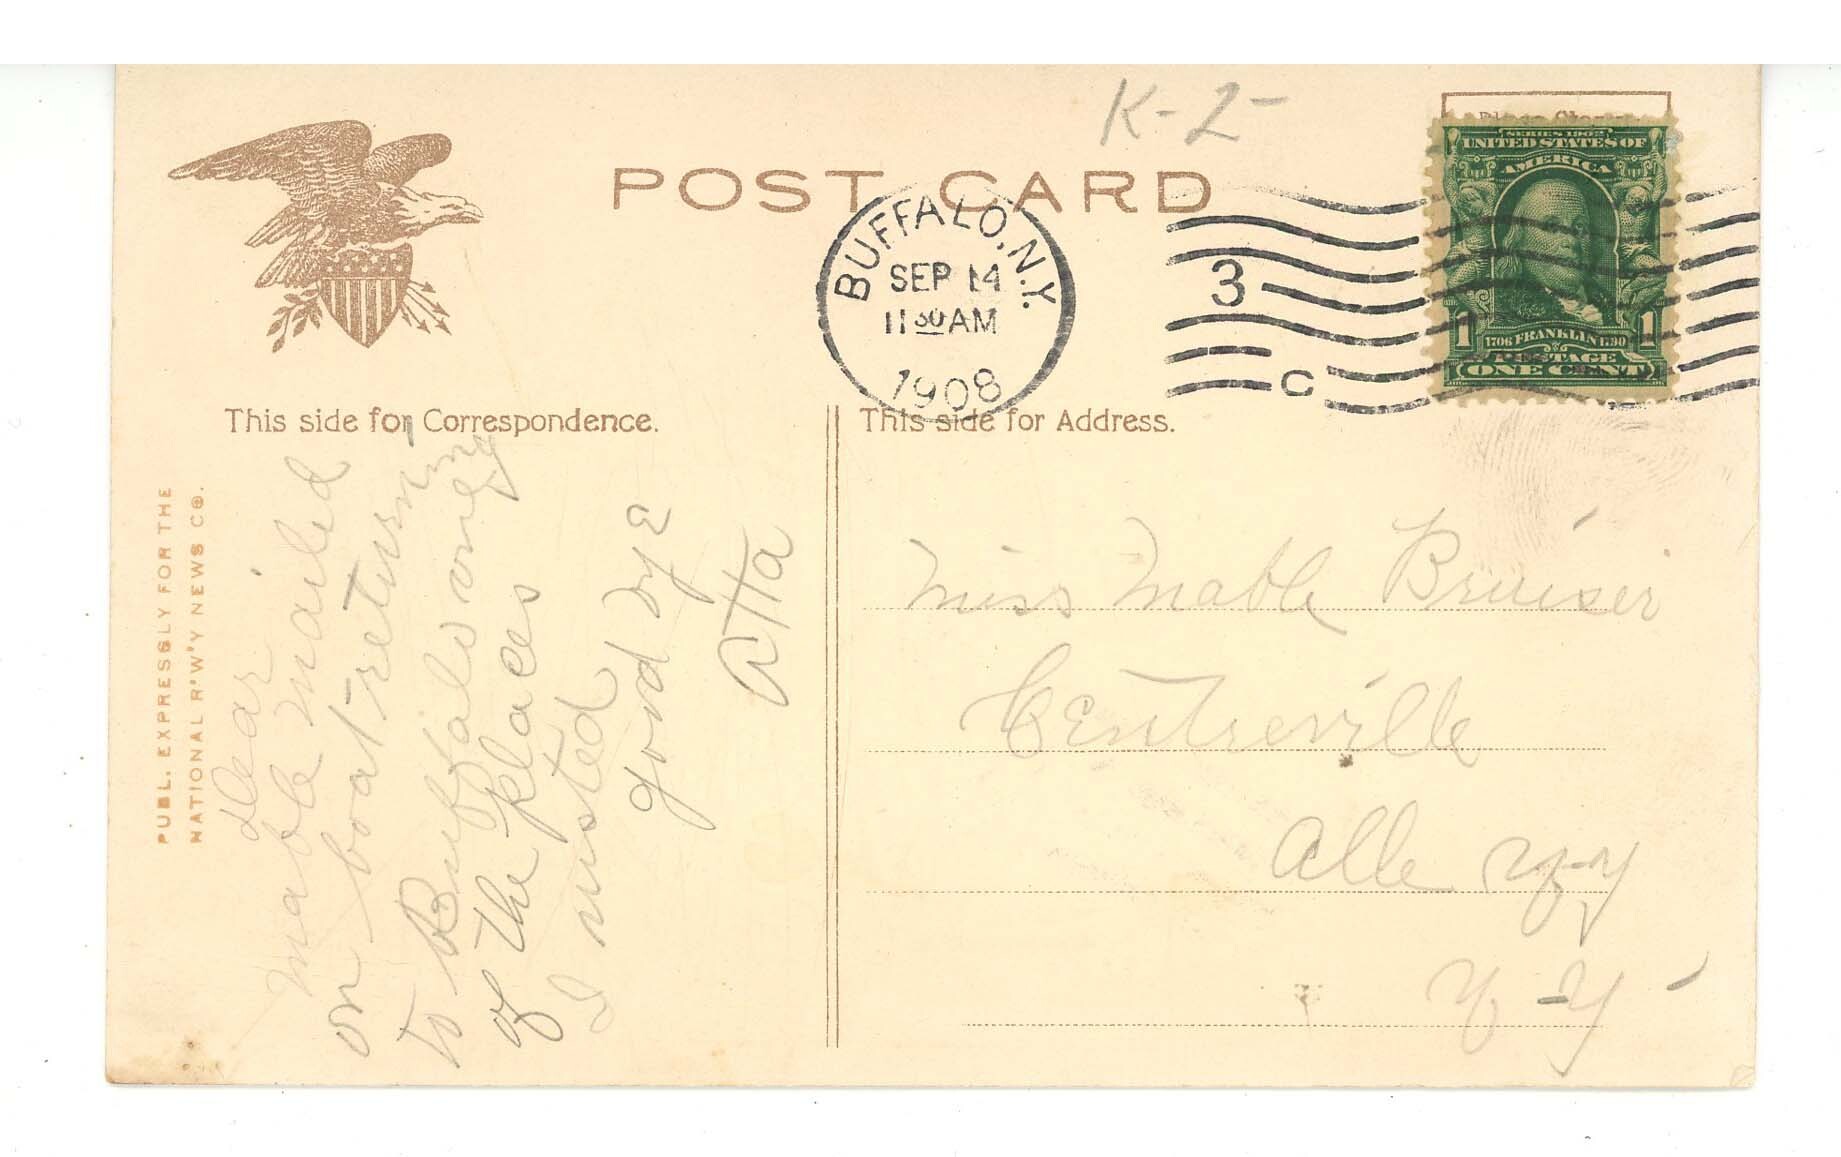 K-2-
POST CARD
SERIES 1902
UNITED STATES OF
AMERICA
1 1
1706 FRANKLIN 1790
POSTAGE
ONE CENT
BUFFALO, N.Y.
SEP 14
11 30 AM
1908
3
C
This side for Correspondence.
This side for Address.
PUBL. EXPRESSLY FOR THE
NATIONAL R'W'Y NEWS Co.
dear
mable mailed
on boat returning
to Buffalo one
of the places
I visited
good bye
Miss Mable
Centreville
Alle
N-Y